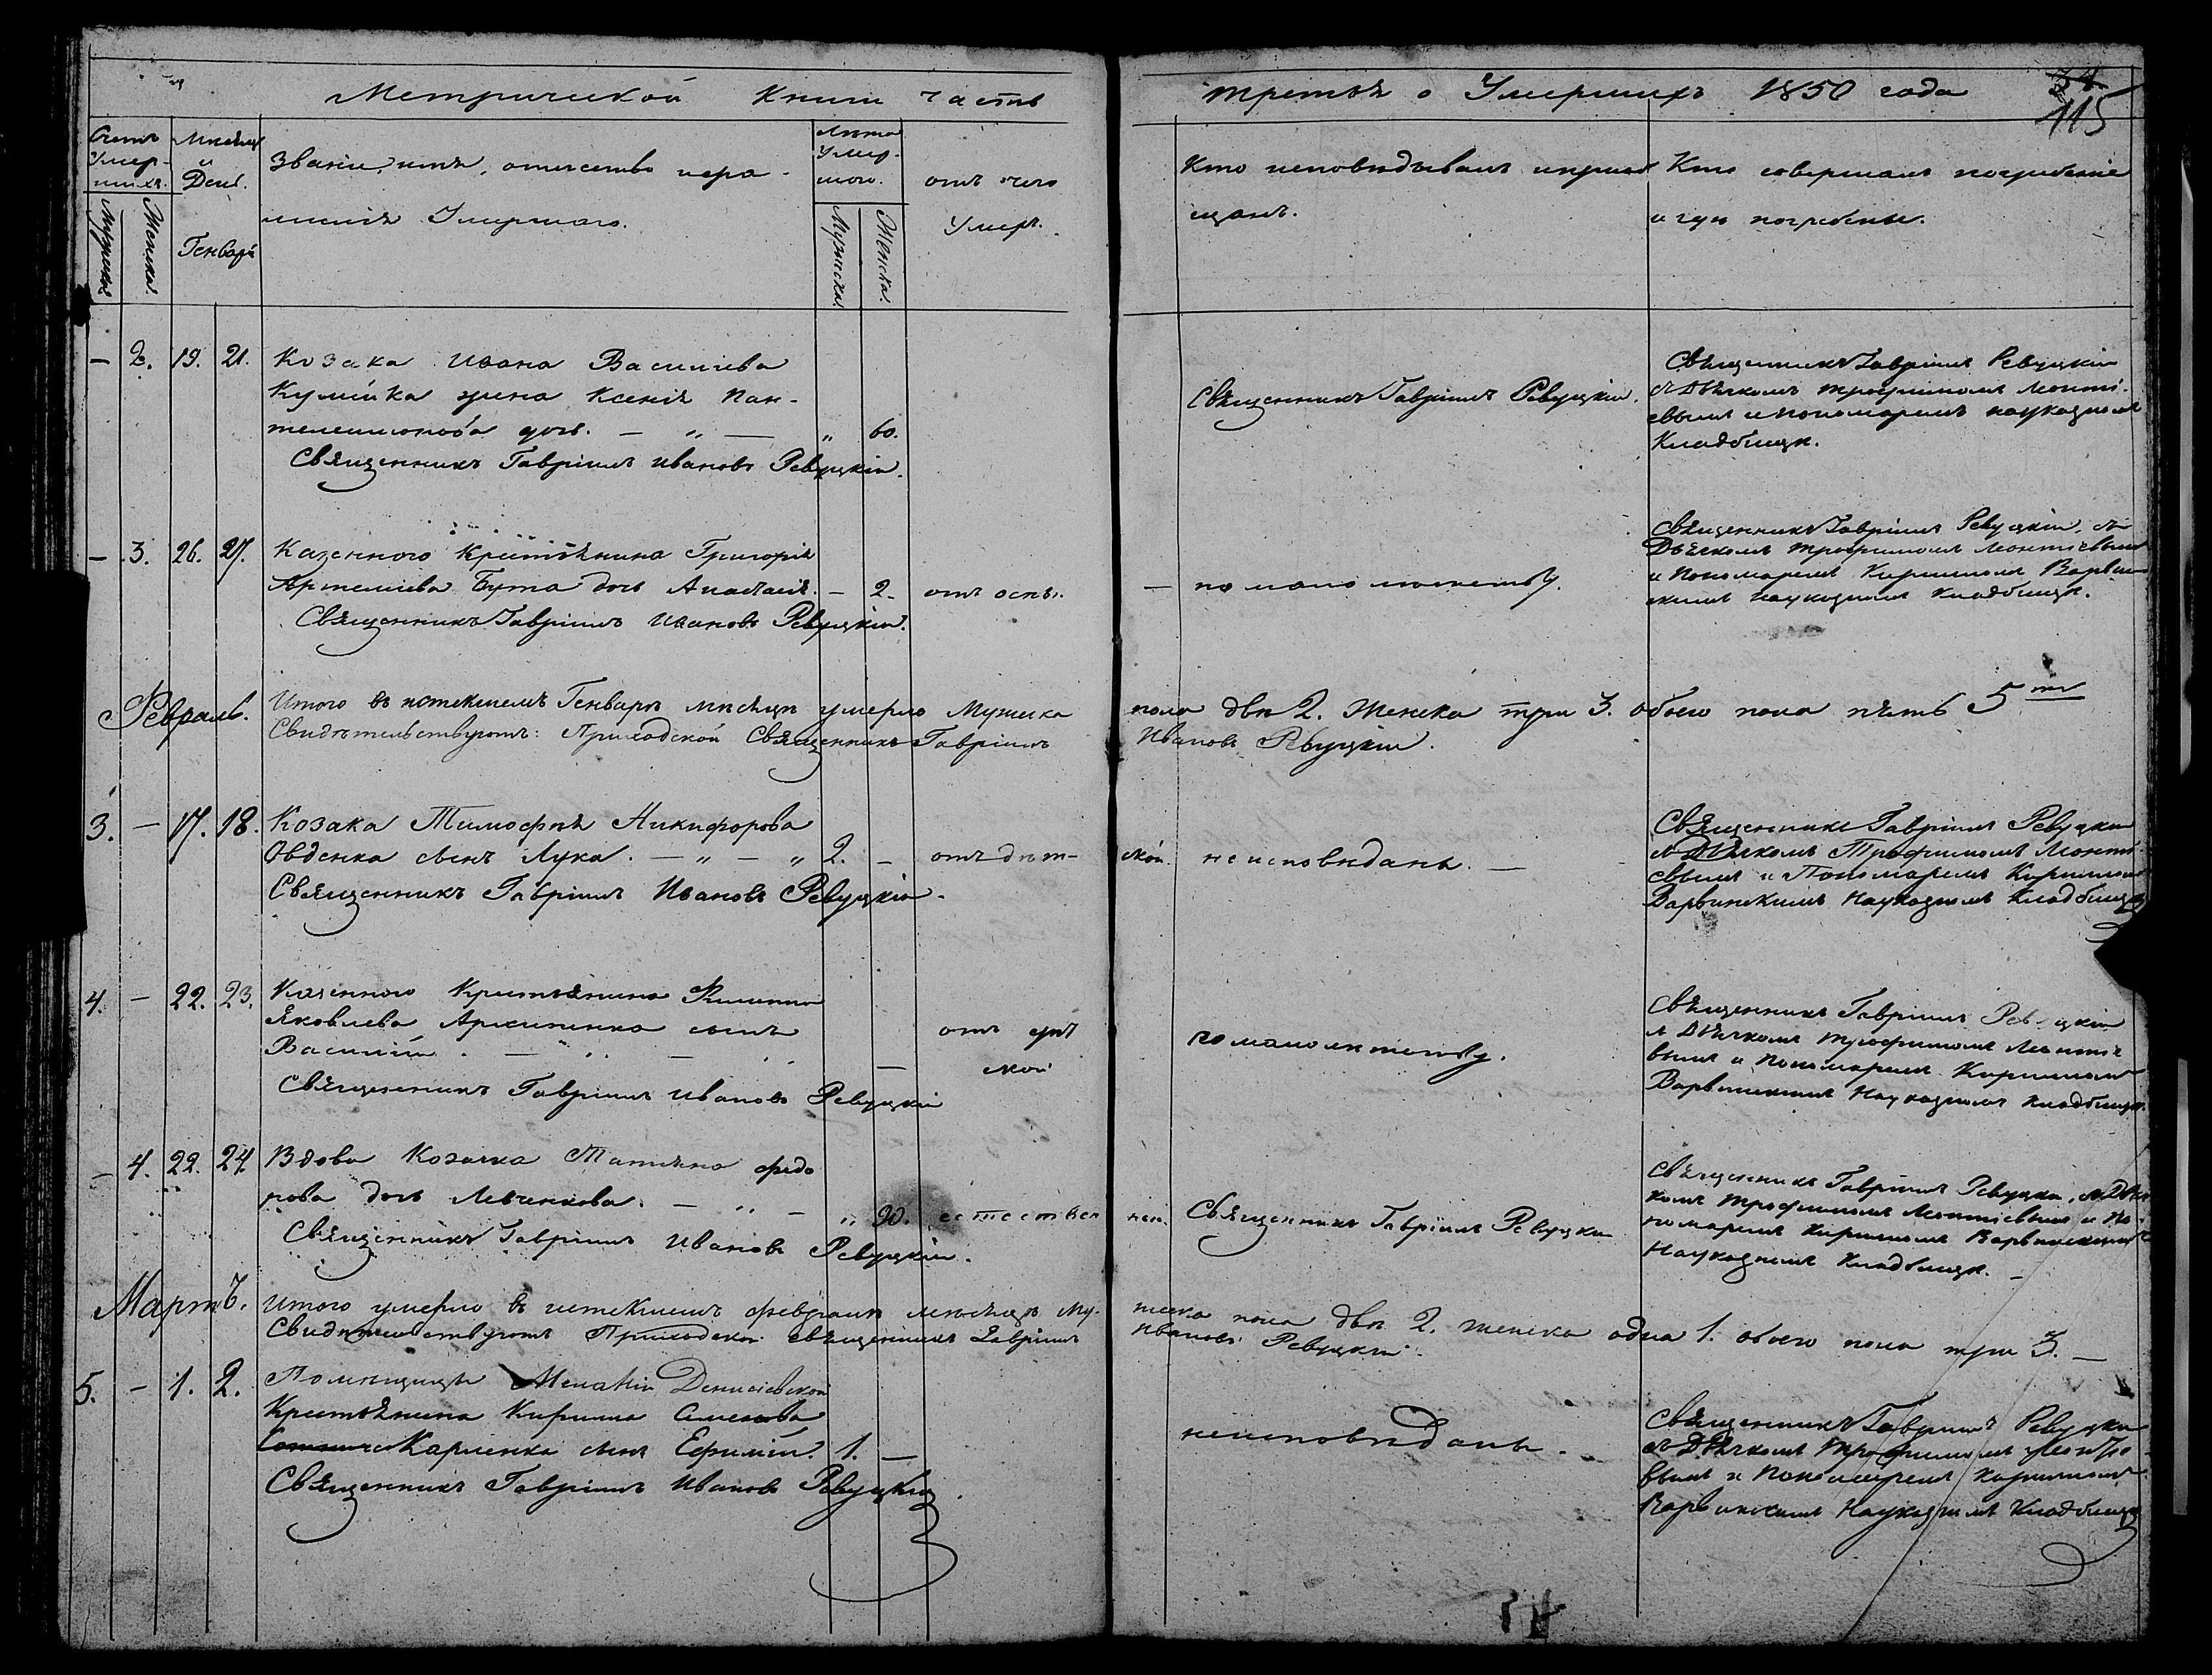 Метрической Книги часть
третья о Умершихъ 1850 года
34
115
Счетъ Умер-
шихъ.
Мужеска
Женска.
Мѣсяцъ
и
День.
Генварь
Званіе, имя, отчество и фа-
милія Умершаго.
Лѣта
Умер-
шаго.
Мужеска.
Женска.
отъ чего
Умеръ.
Кто исповѣдывалъ и приоб-
щалъ.
Кто совершалъ погребеніе
и гдѣ погребены.
— 2. 19. 21. Козака Ивана Василіева
жена Ксенія Пан-
телеимонова дочь. — „ — „ 60.
Священникъ Гавріилъ Ивановъ Ревуцкій.
Священникъ Гавріилъ Ревуцкій.
Священникъ Гавріилъ Ревуцкій
съ Дьячкомъ Трофимомъ Леонті-
евымъ и пономаремъ на
Кладбищѣ.
— 3. 26. 27. Казенного Крестьянина Григорія
Артеміева Бута дочь Анастасія. — 2. отъ оспы.
Священникъ Гавріилъ Ивановъ Ревуцкій.
— по малолѣтству.
Священникъ Гавріилъ Ревуцкій, съ
Дьячкомъ Трофимомъ Леонтіевымъ
и Пономаремъ Кириломъ Варвин-
скимъ Кладбищѣ.
Февраль.
Итого въ истекшемъ Генварѣ мѣсяцѣ умерло Мужеска
пола двѣ 2. Женска три 3. обоего пола пять 5
Свидѣтельствуютъ: Приходской Священникъ Гавріилъ
Ивановъ Ревуцкій.
3. — 17. 18. Козака Тимофея Никифорова
Овденка сынъ Лука. — „ — „ 2. — отъ дѣт-
ской. не исповѣданъ. —
Священникъ Гавріилъ Ивановъ Ревуцкій.
Священникъ Гавріилъ Ревуцкій
съ Дьячкомъ Трофимомъ Леонті-
евымъ и Пономаремъ Кириломъ
Варвинскимъ Кладбищѣ
4. — 22. 23. Казенного Крестьянина Филиппа
Яковлева Архипенка сынъ
Василій. — „ — „ — отъ дѣт
ской
по малолѣтству.
Священникъ Гавріилъ Ивановъ Ревуцкій
Священникъ Гавріилъ Ревуцкій
съ Дьячкомъ Трофимомъ Леонтіе
вымъ и Пономаремъ Кириломъ
Варвинскимъ Кладбищѣ.
— 4. 22. 24. Вдова Козачка Татіяна Федо
рова дочь Левченкова. — „ — „ 90. естествен
ной. Священникъ Гавріилъ Ревуцкій
Священникъ Гавріилъ Ивановъ Ревуцкій.
Священникъ Гавріилъ Ревуцкій, съ Дьяч
комъ Трофимомъ Леонтіевымъ и По-
номаремъ Кириломъ Варвинскимъ
Кладбищѣ. —
Мартъ.
Итого умерло въ истекшемъ Февралѣ мѣсяцѣ Му-
жеска пола двѣ 2. женска одна 1. обоего пола три 3. —
Свидѣтельствуютъ Приходской священникъ Гавріилъ
Ивановъ Ревуцкій.
5. — 1. 2. Помѣщицы Меланіи Денисіевской
Крестьянина Кирила Семенова
Карпенка сынъ Ефимій. 1. —
Священникъ Гавріилъ Ивановъ Ревуцкій.
неисповѣданъ.
Священникъ Гавріилъ Ревуцкій
съ Дьячкомъ Трофимомъ Леонтіе
вымъ и Пономаремъ Кириломъ
Варвинскимъ Кладбищѣ